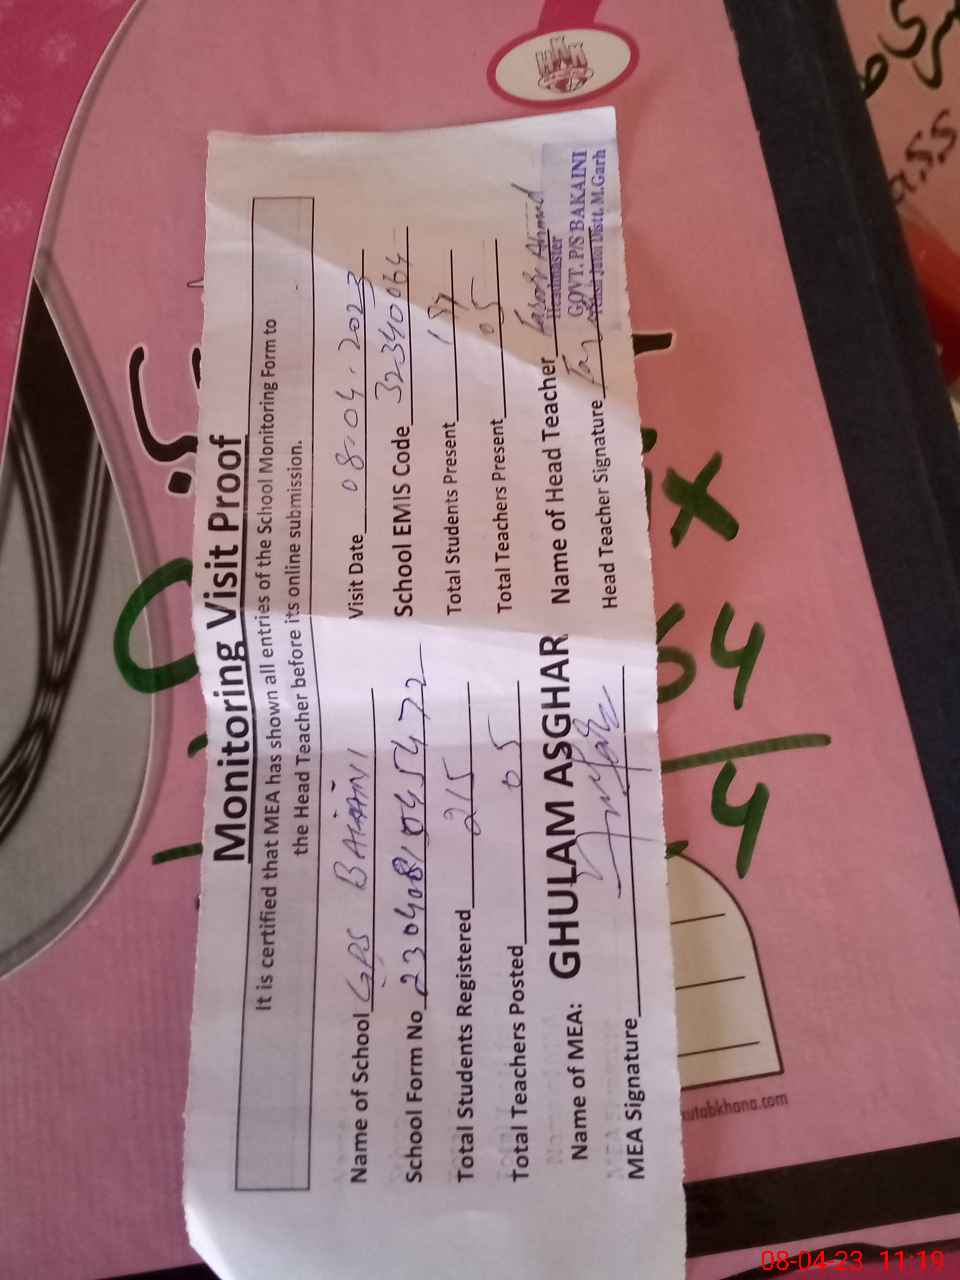 Monitoring Visit Proof
It is certified that MEA has shown all entries of the School Monitoring Form to
the Head Teacher before its online submission.
Name of School GPS BAKAINI Visit Date 08.04.2023
School Form No 2304081045472 School EMIS Code 32340064
Total Students Registered 215 Total Students Present
Total Teachers Posted 05 Total Teachers Present 05
Name of MEA: GHULAM ASGHAR Name of Head Teacher Ahmad
MEA Signature Head Teacher Signature
Headmaster
GOVT. P/S BAKAINI
Jatoi Distt. M.Garh
utabkhana.com
08-04-23 11:19